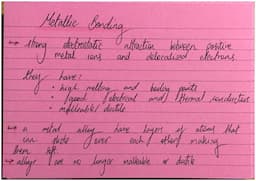 Metallic Bonding
→ strong electrostatic attraction between positive
metal ions and delocalised electrons.
they have:
• high melting and boiling points
• good electrical and thermal conductors
• malleable / ductile
→ a metal alloy have layers of atoms that
can slide over each other making
them soft.
→ alloys no longer malleable or ductile